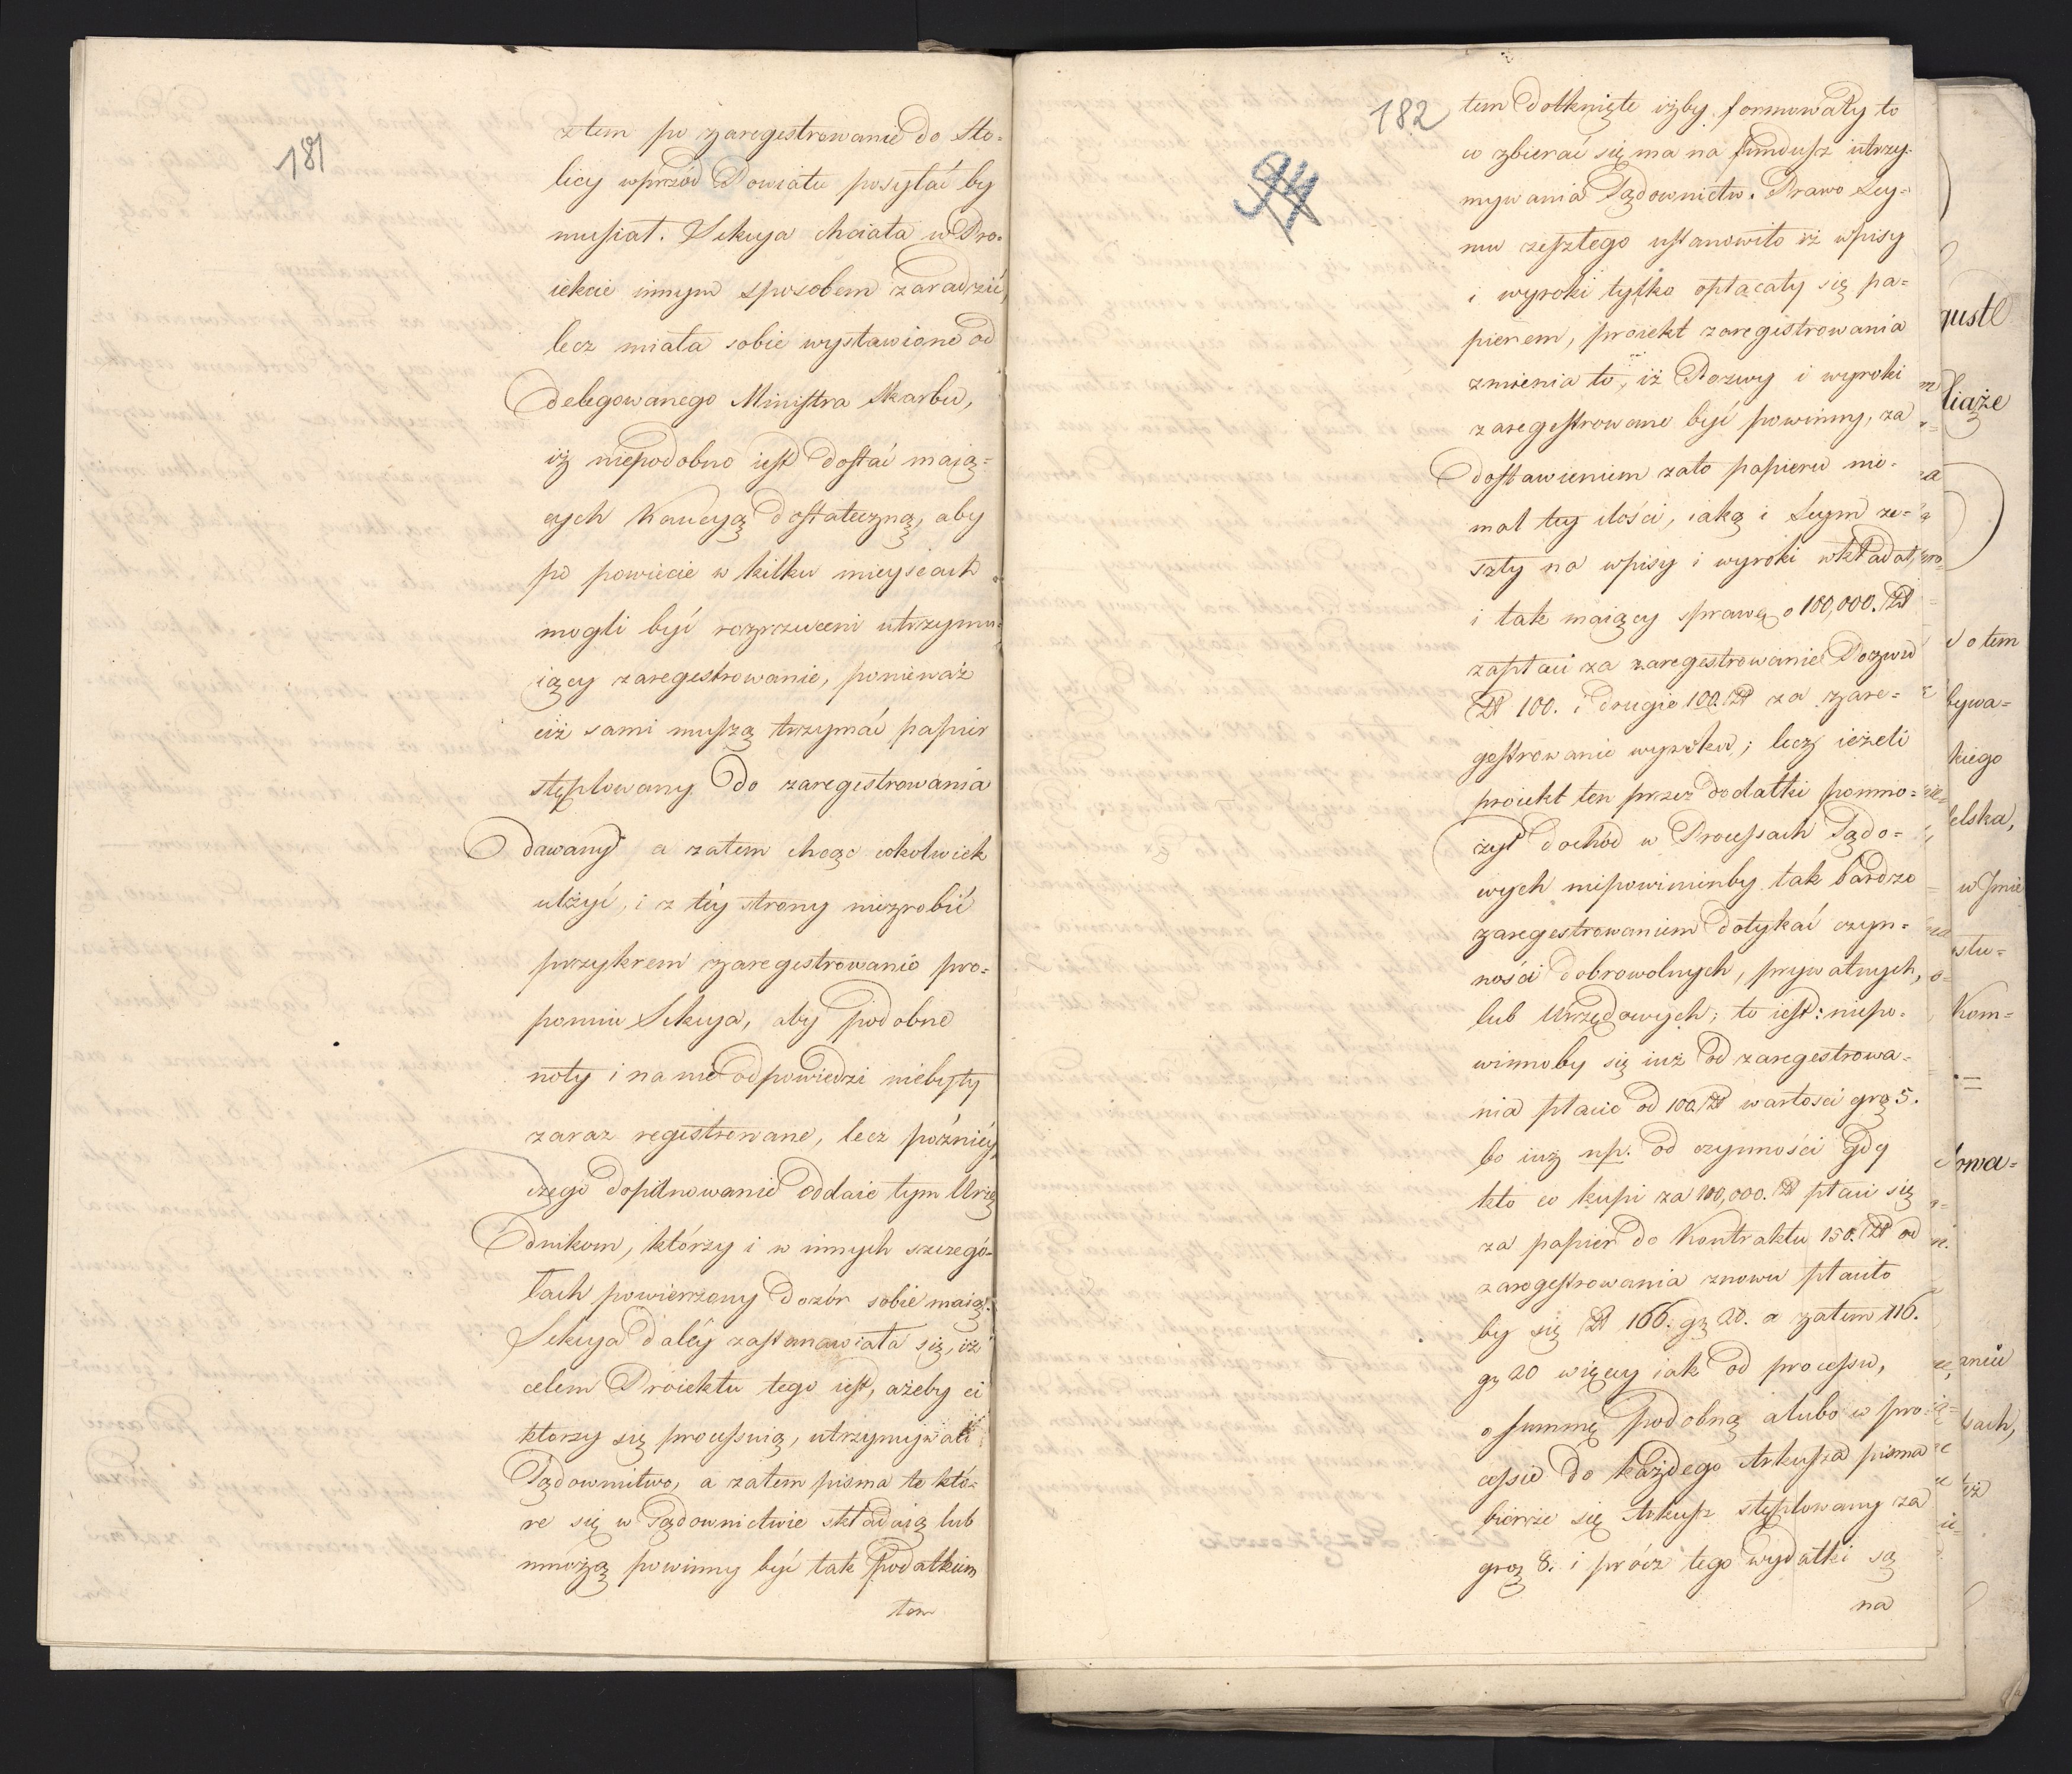 181
z tem po zaregestrowanie do sto-
licy wprzód Powiatu posyłać by
musiał. Sekcya chciała w Pro-
iekcie innym sposobem zaradzić,
lecz miała sobie wystawione od
delegowanego Ministra Skarbu,
iż niepodobno iest dostać maią-
cych Kaucyą dostateczną, aby
po powiecie w kilku mieyscach
mogli być rozrzuceni utrzymu-
iący zaregestrowanie, ponieważ
ciż sami muszą trzymać papier
stęplowany do zaregistrowania
dawany a zatem chcąc cokolwiek
ulżyć, i z téy strony niezrobić
przykrem zaregestrowanie pro-
ponuie Sekcya, aby podobne
noty i na nie odpowiedzi niebyły
zaraz registrowane, lecz późniéy
czego dopilnowanie oddaie tym Urzę
dnikom, którzy i w innych szczegó-
łach powierzony dozór sobie maią.
Sekcya daléy zastanawiała się, iż
celem Proiektu tego iest, ażeby ci
którzy się processuią, utrzymywali
Sądownitwo, a zatem pisma te któ-
re się w Sądownictwie składaią lub
mnożą powinny być tak podatkiem
tem
182
94
tem dotknięte iżby formowały to
co zbierać się ma na fundusz utrzy-
mywania Sądownictw. Prawo Sey-
mu zeszłego ustanowiło iż wpisy
i wyroki tylko opłacały się pa-
pierem, proiekt zaregistrowania
zmienia to, iż Pozwy i wyroki
zaregestrowane być powinny, za
dostawieniem zato papieru nie-
mal téy ilości, iaką i Seym ze-
szły na wpisy i wyroki wkładał,
i tak maiący sprawę o 100,000. Zł
zapłaci za zaregestrowanie Pozwu
Zł 100. i drugie 100. Zł za zare-
gestrowanie wyroku; lecz ieżeli
proiekt ten przez dodatki pomno-
żył dochód w Processach Sądo-
wych niepowininby tak bardzo
zaregestrowaniem dotykać czyn-
ności dobrowolnych, prywatnych,
lub Urzędowych; to iest: niepo-
winnoby się iuż od zaregestrowa-
nia płacić od 100. Zł wartości gro 5.
bo iuż np. od czynności gdy
kto co kupi za 100,000. Zł płaci się
za papier do Kontraktu 150. Zł od
zaregestrowania znowu płaciło
by się Zł 166. gr 20. a zatem 116.
gr 20 więcey iak od processu,
o summę podobną alubo w pro-
cessie do każdego Arkusza pisma
bierze się Arkusz stęplowany za
gro 8. i prócz tego wydatki są
na